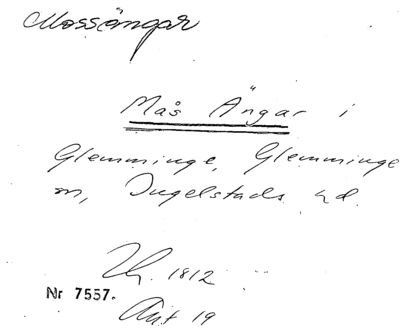 Mossängar
Mås Ängar i
Glemminge, Glemminge
sn, Ingelstads hd.
Th. 1812
Nr 7557.
Akt 19